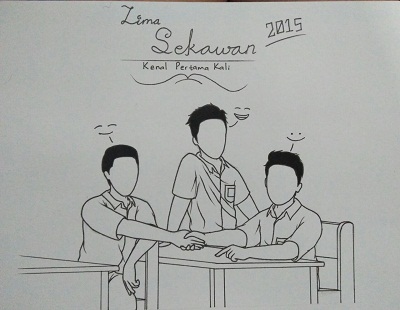 Lima
Sekawan
2015
Kenal Pertama Kali